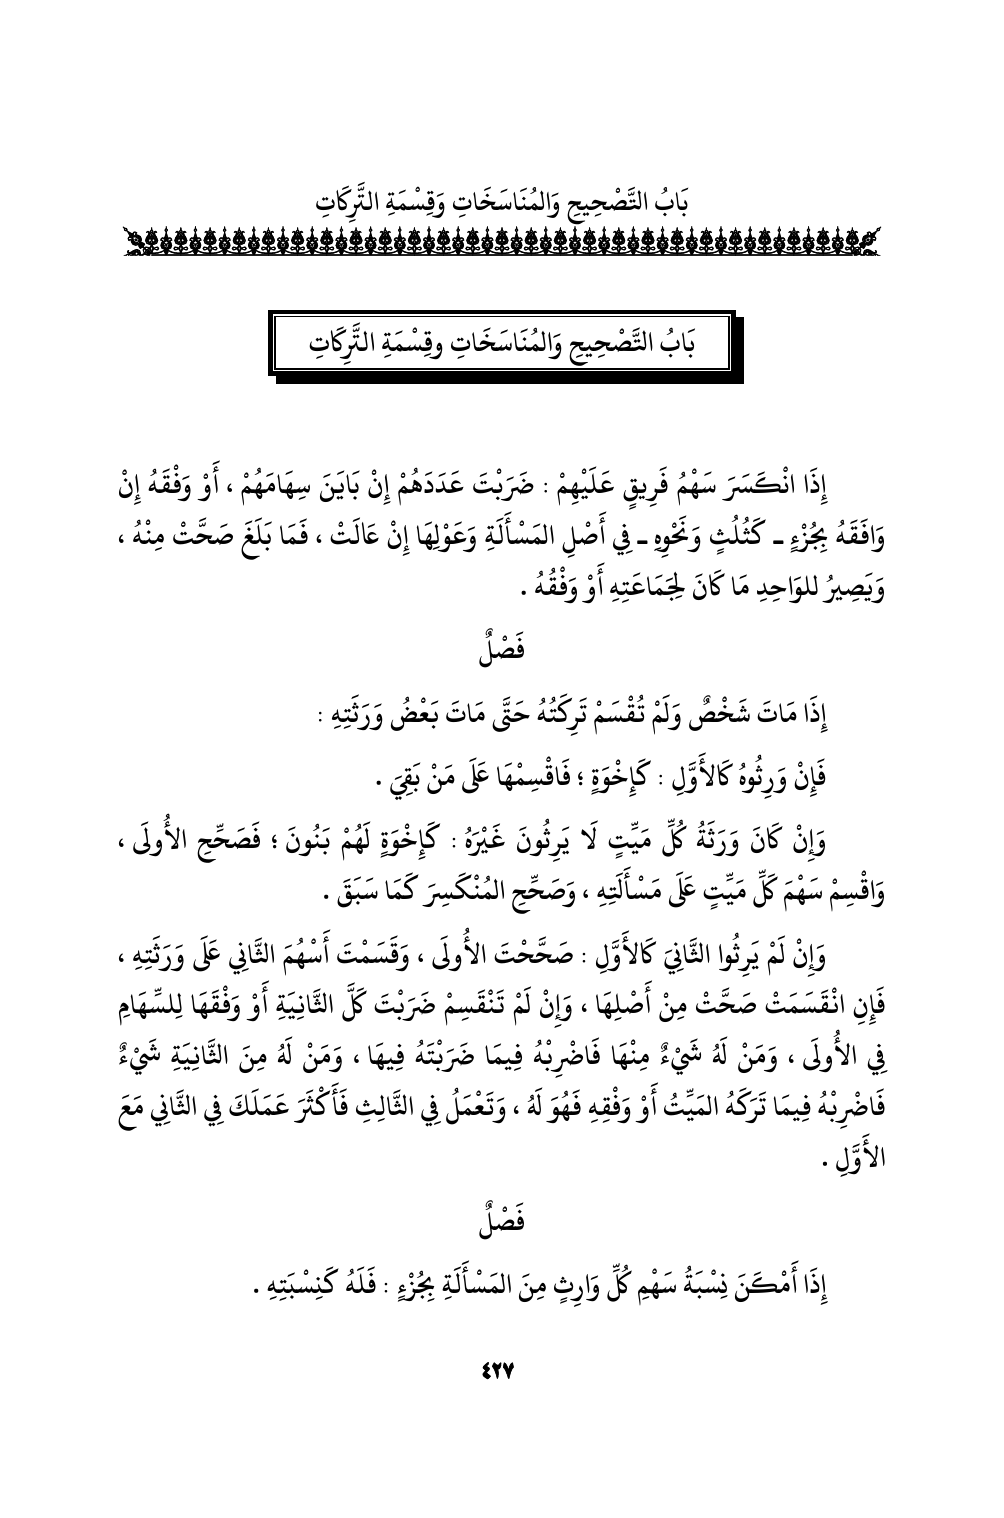 بَابُ التَّصْحِيحِ وَالمُنَاسَخَاتِ وَقِسْمَةِ التَّرِكَاتِ
بَابُ التَّصْحِيحِ وَالمُنَاسَخَاتِ وقِسْمَةِ التَّرِكَاتِ
إِذَا انْكَسَرَ سَهْمُ فَرِيقٍ عَلَيْهِمْ : ضَرَبْتَ عَدَدَهُمْ إِنْ بَايَنَ سِهَامَهُمْ ، أَوْ وَفْقَهُ إِنْ
وَافَقَهُ بِجُزْءٍ ــ كَثُلُثٍ وَنَحْوِهِ ــ فِي أَصْلِ المَسْأَلَةِ وَعَوْلِهَا إِنْ عَالَتْ ، فَمَا بَلَغَ صَحَّتْ مِنْهُ ،
وَيَصِيرُ للوَاحِدِ مَا كَانَ لِجَمَاعَتِهِ أَوْ وَفْقُهُ .
فَصْلٌ
إِذَا مَاتَ شَخْصٌ وَلَمْ تُقْسَمْ تَرِكَتُهُ حَتَّى مَاتَ بَعْضُ وَرَثَتِهِ :
فَإِنْ وَرِثُوهُ كَالأَوَّلِ : كَإِخْوَةٍ ؛ فَاقْسِمْهَا عَلَى مَنْ بَقِيَ .
وَإِنْ كَانَ وَرَثَةُ كُلِّ مَيِّتٍ لَا يَرِثُونَ غَيْرَهُ : كَإِخْوَةٍ لَهُمْ بَنُونَ ؛ فَصَحِّحِ الأُولَى ،
وَاقْسِمْ سَهْمَ كَلِّ مَيِّتٍ عَلَى مَسْأَلَتِهِ ، وَصَحِّحِ المُنْكَسِرَ كَمَا سَبَقَ .
وَإِنْ لَمْ يَرِثُوا الثَّانِيَ كَالأَوَّلِ : صَحَّحْتَ الأُولَى ، وَقَسَمْتَ أَسْهُمَ الثَّانِي عَلَى وَرَثَتِهِ ،
فَإِنِ انْقَسَمَتْ صَحَّتْ مِنْ أَصْلِهَا ، وَإِنْ لَمْ تَنْقَسِمْ ضَرَبْتَ كَلَّ الثَّانِيَةِ أَوْ وَفْقَهَا لِلسِّهَامِ
فِي الأُولَى ، وَمَنْ لَهُ شَيْءٌ مِنْهَا فَاضْرِبْهُ فِيمَا ضَرَبْتَهُ فِيهَا ، وَمَنْ لَهُ مِنَ الثَّانِيَةِ شَيْءٌ
فَاضْرِبْهُ فِيمَا تَرَكَهُ المَيِّتُ أَوْ وَفْقِهِ فَهُوَ لَهُ ، وَتَعْمَلُ فِي الثَّالِثِ فَأَكْثَرَ عَمَلَكَ فِي الثَّانِي مَعَ
الأَوَّلِ .
فَصْلٌ
إِذَا أَمْكَنَ نِسْبَةُ سَهْمِ كُلِّ وَارِثٍ مِنَ المَسْأَلَةِ بِجُزْءٍ : فَلَهُ كَنِسْبَتِهِ .
٤٢٧